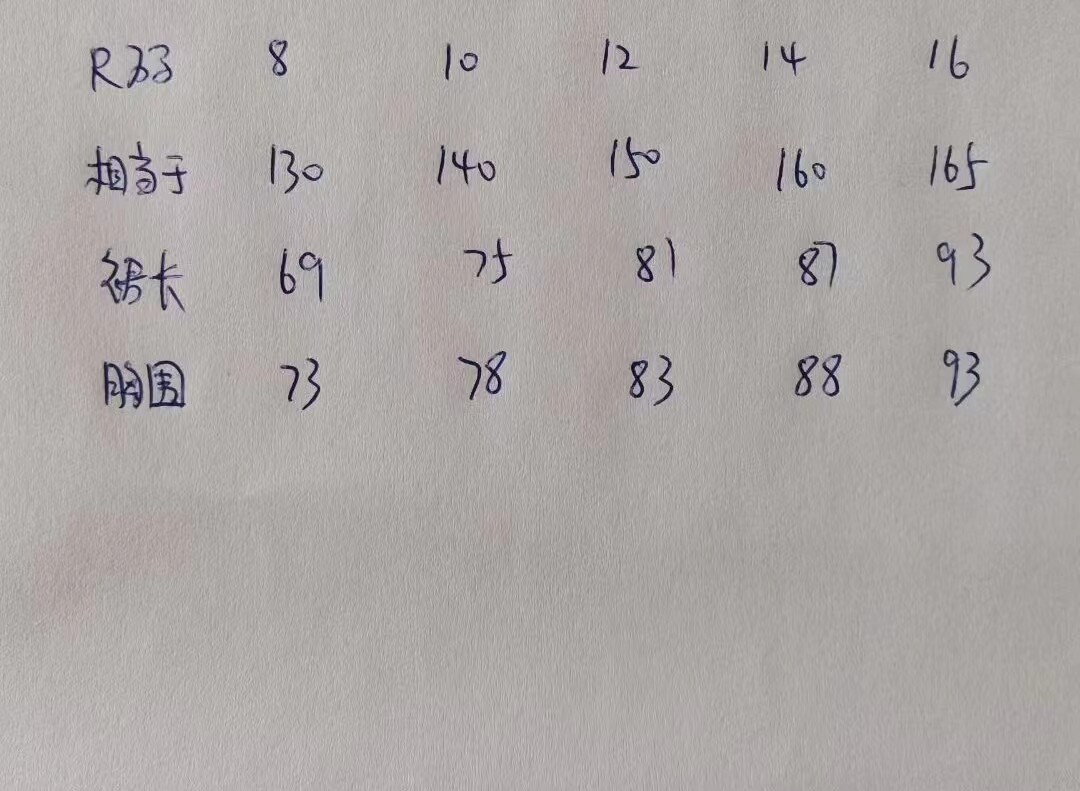 尺码 8 10 12 14 16
相当于 130 140 150 160 165
裙长 69 75 81 87 93
胸围 73 78 83 88 93